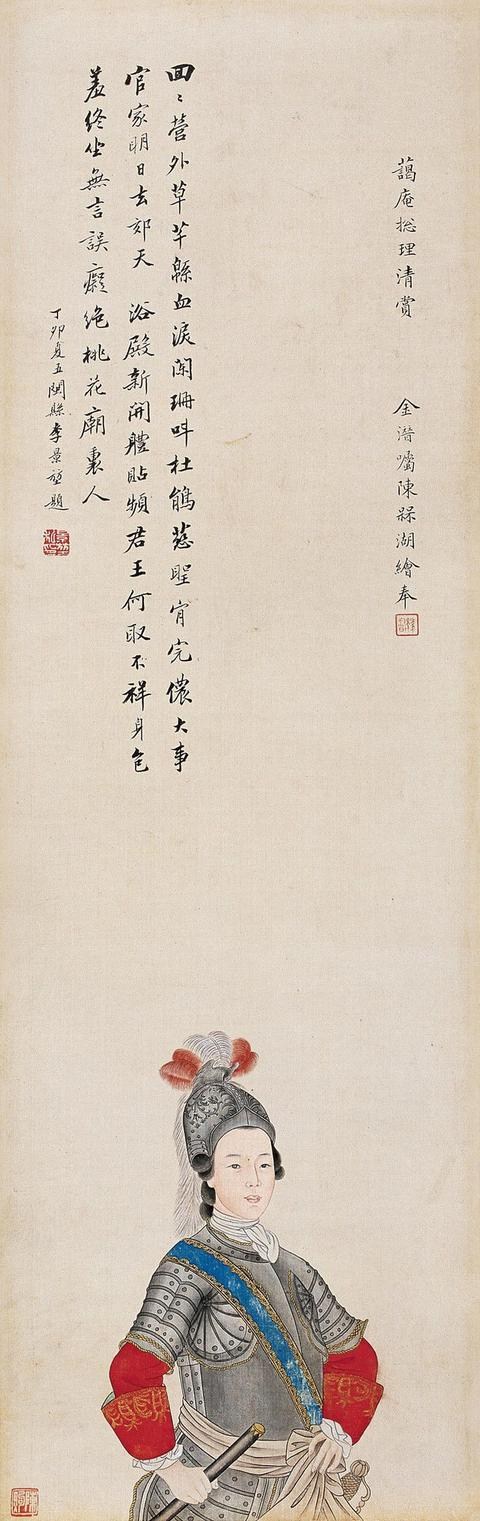 藹庵総理清賞 金潛囑陳槑湖繪奉
回〻營外草芊緜血淚闌珊叫杜鵑慈聖肎完儂大事
官家明日去郊天 浴殿新開體貼頻君王何取不祥身包
羞終坐無言誤癡絕桃花廟裏人
丁卯夏五閩縣李景堃題